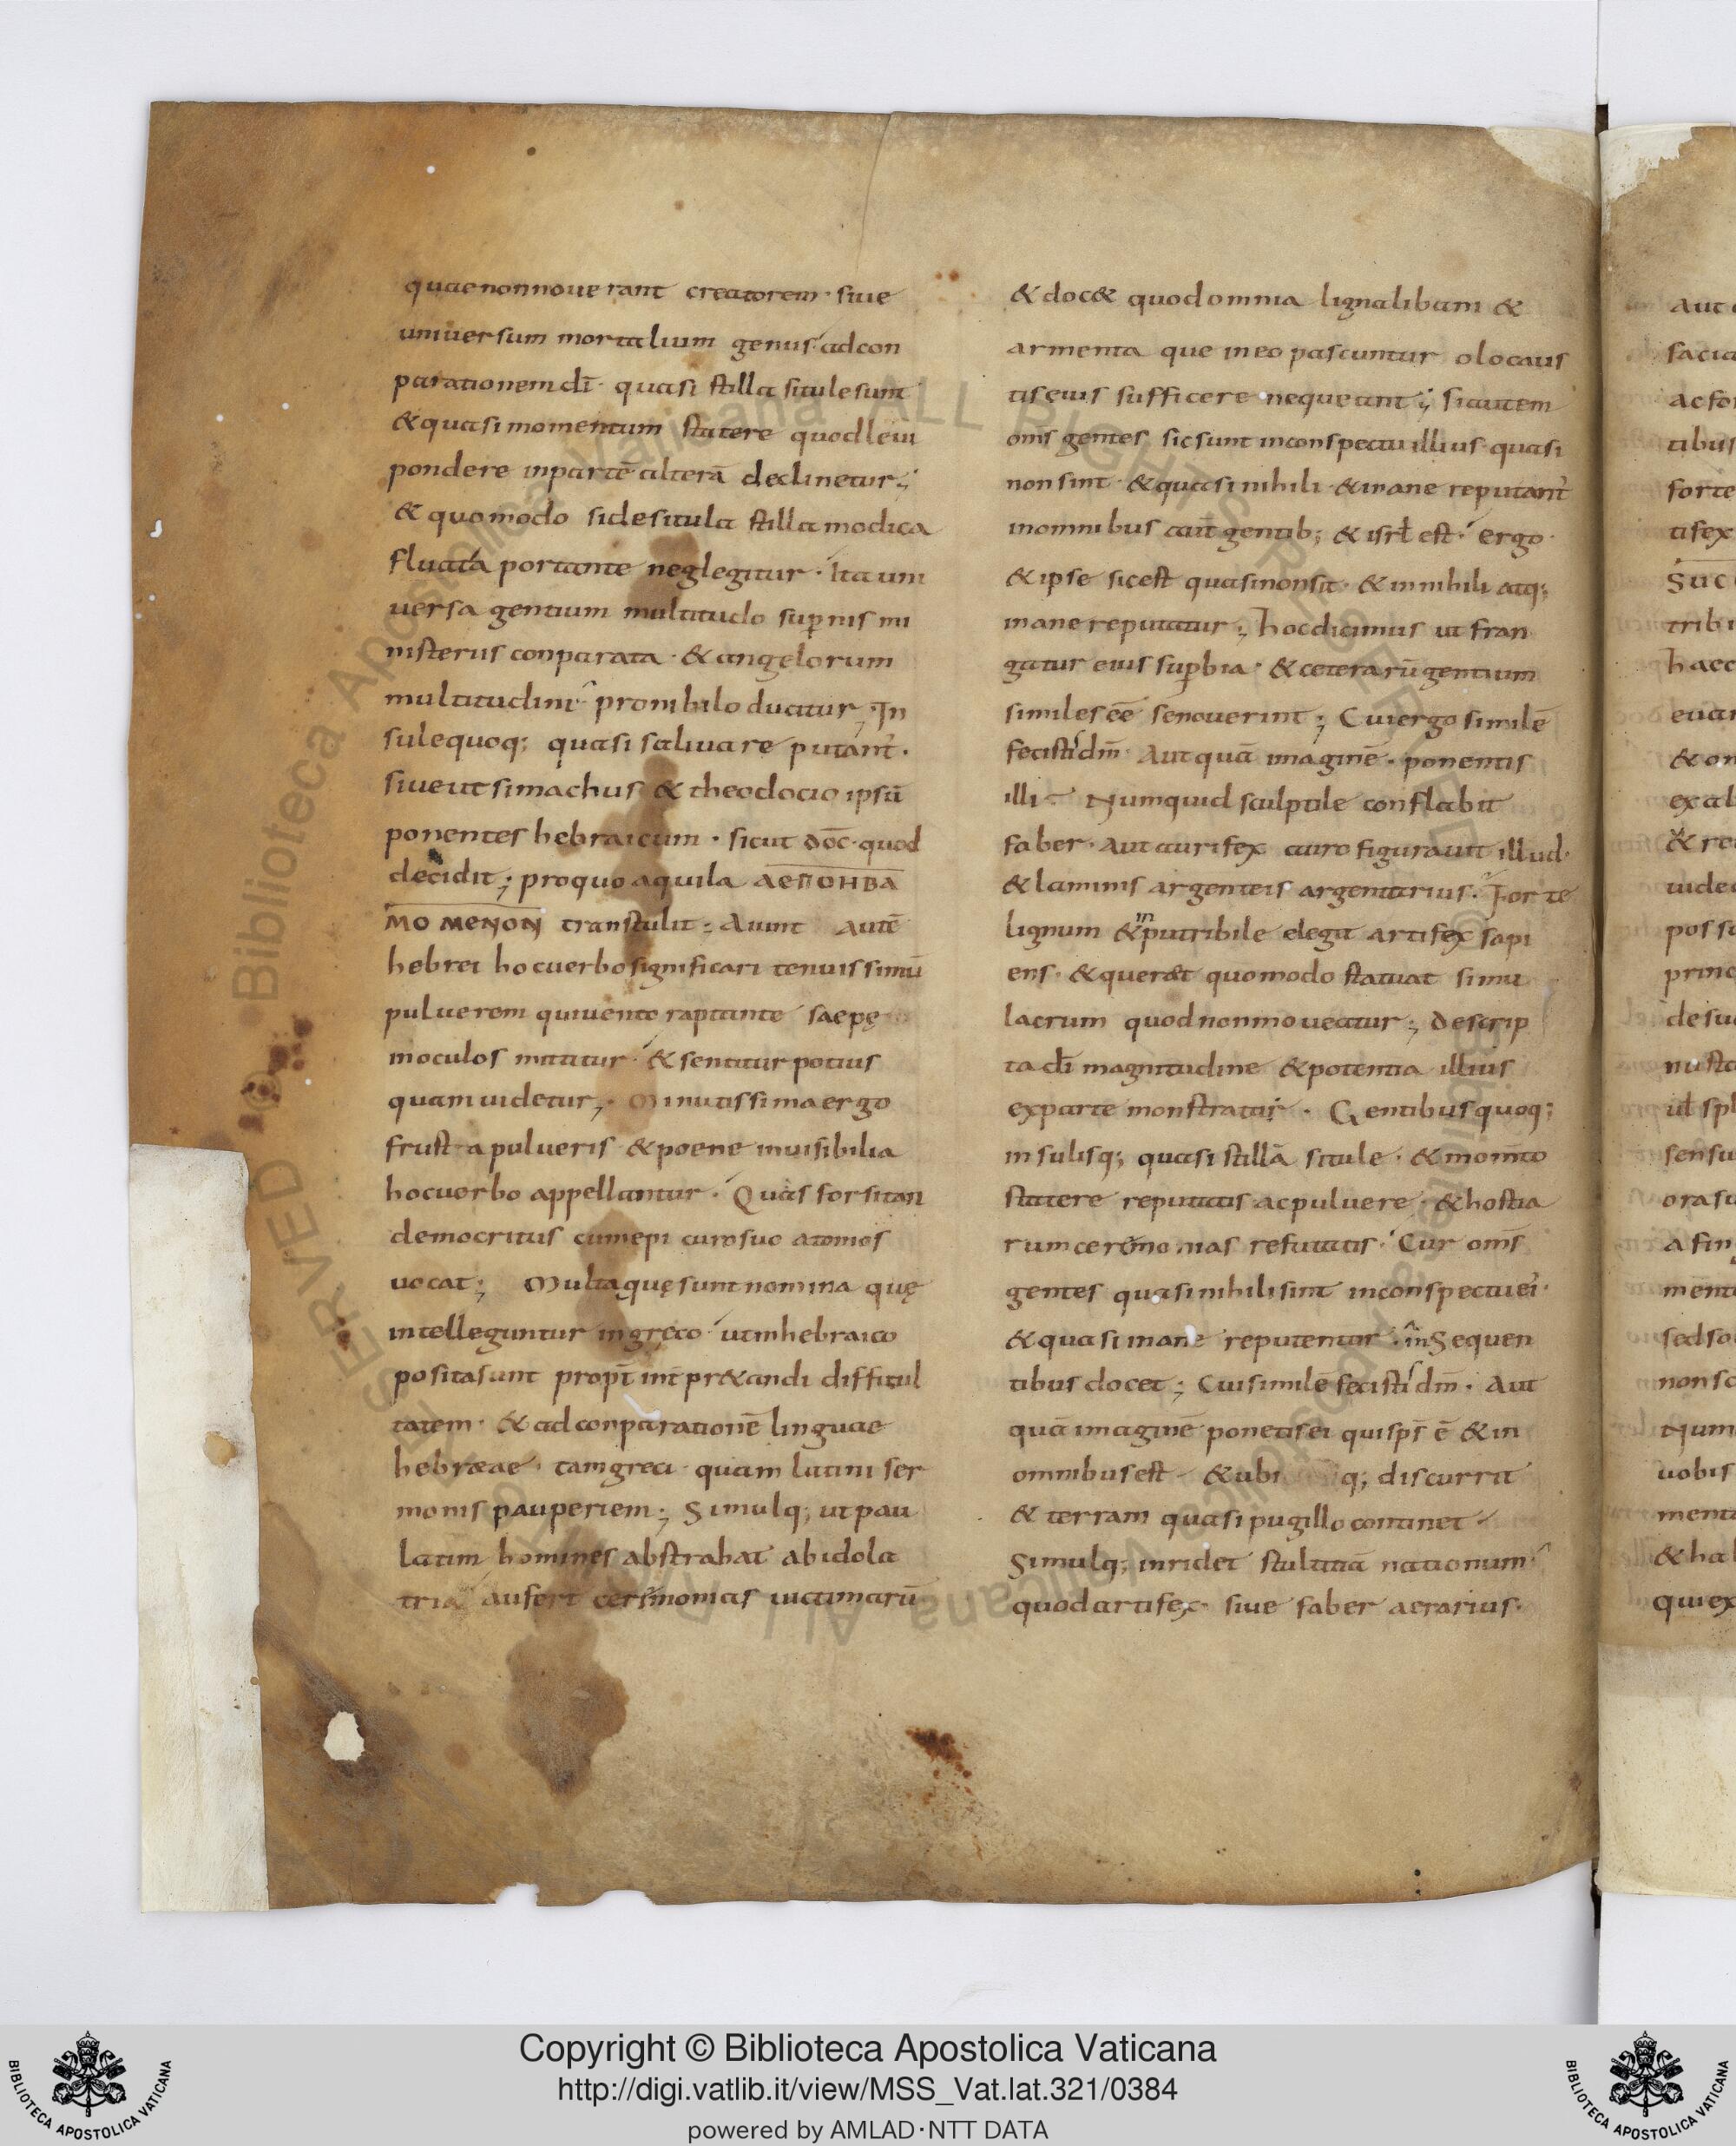 quae non noverant creatorem · sive
universum mortalium genus ad con
parationem dī · quasi stilla situle sunt
& quasi momentum statere quod levi
pondere in partē alterā declinetur ;
& quomodo si de situla stilla modica
fluat á portante neglegitur · Ita uni
versa gentium multitudo supnis mi
nisteriis conparata · & angelorum
multitudini pro nihilo ducatur ; In
sule quoq; quasi saliva reputant̄ ·
sive ut simachus & theodocio ipsū
ponentes hebraicum · sicut doc̄ · quod
decidit ; pro quo aquila ΛΕΠΟΗΒΑ
ΜΟ ΜΕΝΟΝ transtulit ; Aiunt autē
hebrei hoc verbo significari tenuissimū
pulverem qui vento raptante saepę
in oculos mittitur · & sentitur potius
quam videtur ; Minutissima ergo
frusta pulveris & poene invisibilia
hoc verbo appellantur · Quas forsitan
democritus cum epicuro suo atomos
vocat ; Multa quę sunt nomina quę
intelleguntur in gręco ut in hebraico
posita sunt prop̄t int̄pr&andi difficul
tatem · & ad conparationē linguae
hebræae · tam greci quam latini ser
monis pauperiem ; Simulq; ut pau
latim homines abstrahat ab idola
tria aufert cerimonias victimarū
& doc& quod omnia ligna libani &
armenta que in eo pascuntur olocaus
tis eius sufficere nequeant ; si autem
om̄s gentes sic sunt in conspectu illius quasi
non sint · & quasi nihili & inane reputant̄
in omnibus aut̄ gentib; & isrl̄ est · ergo ·
& ipse sic est quasi non sit · & in nihili atq;
inane reputatur ; Hoc dicimus ut fran
gatur eius supbia · & ceterarū gentium
similes eē se noverint ; Cui ergo similē
fecistis dm̄ · Aut quā imaginē · ponentis
illi · Numquid sculptile conflabit
faber · Aut aurifex auro figuravit illud ·
& laminis argenteis argentarius · Forte
lignum & inputribile elegit artifex sapi
ens · & queræt quomodo statuat simu
lacrum quod non moveatur ; descrip
ta dī magnitudine & potentia illius
ex parte monstratur · Gentibus quoq;
insulisq; quasi stillā situle · & mom̄to
statere reputatis ac pulvere · & hostia
rum cerimonias refutatis · Cur om̄s
gentes quasi nihili sint in conspectu ei' ·
& quasi inane reputentur · in Sequen
tibus docet ; Cui similē fecistis dm̄ · Aut
quā imaginē ponetis ei qui sps̄ ē & in
omnibus est · & ubi q; discurrit
& terram quasi pugillo continet
Simulq; inridet stultitiā nationum
quod artifex sive faber aerarius ·
Copyright © Biblioteca Apostolica Vaticana
http://digi.vatlib.it/view/MSS_Vat.lat.321/0384
powered by AMLAD·NTT DATA
BIBLIOTECA APOSTOLICA VATICANA
BIBLIOTECA APOSTOLICA VATICANA